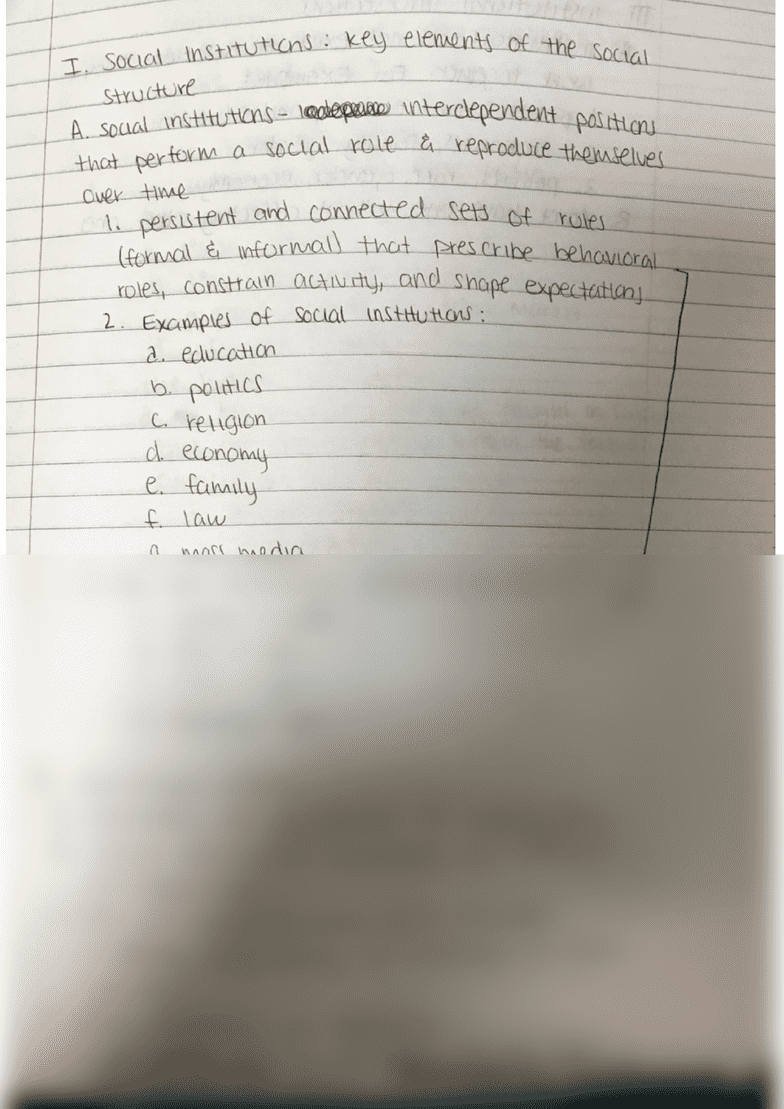 I. Social Institutions: key elements of the social
structure
A. social institutions - interdependent positions
that perform a social role & reproduce themselves
over time
1. persistent and connected sets of rules
(formal & informal) that prescribe behavioral
roles, constrain activity, and shape expectations
2. Examples of social institutions:
a. education
b. politics
c. religion
d. economy
e. family
f. law
g. mass media